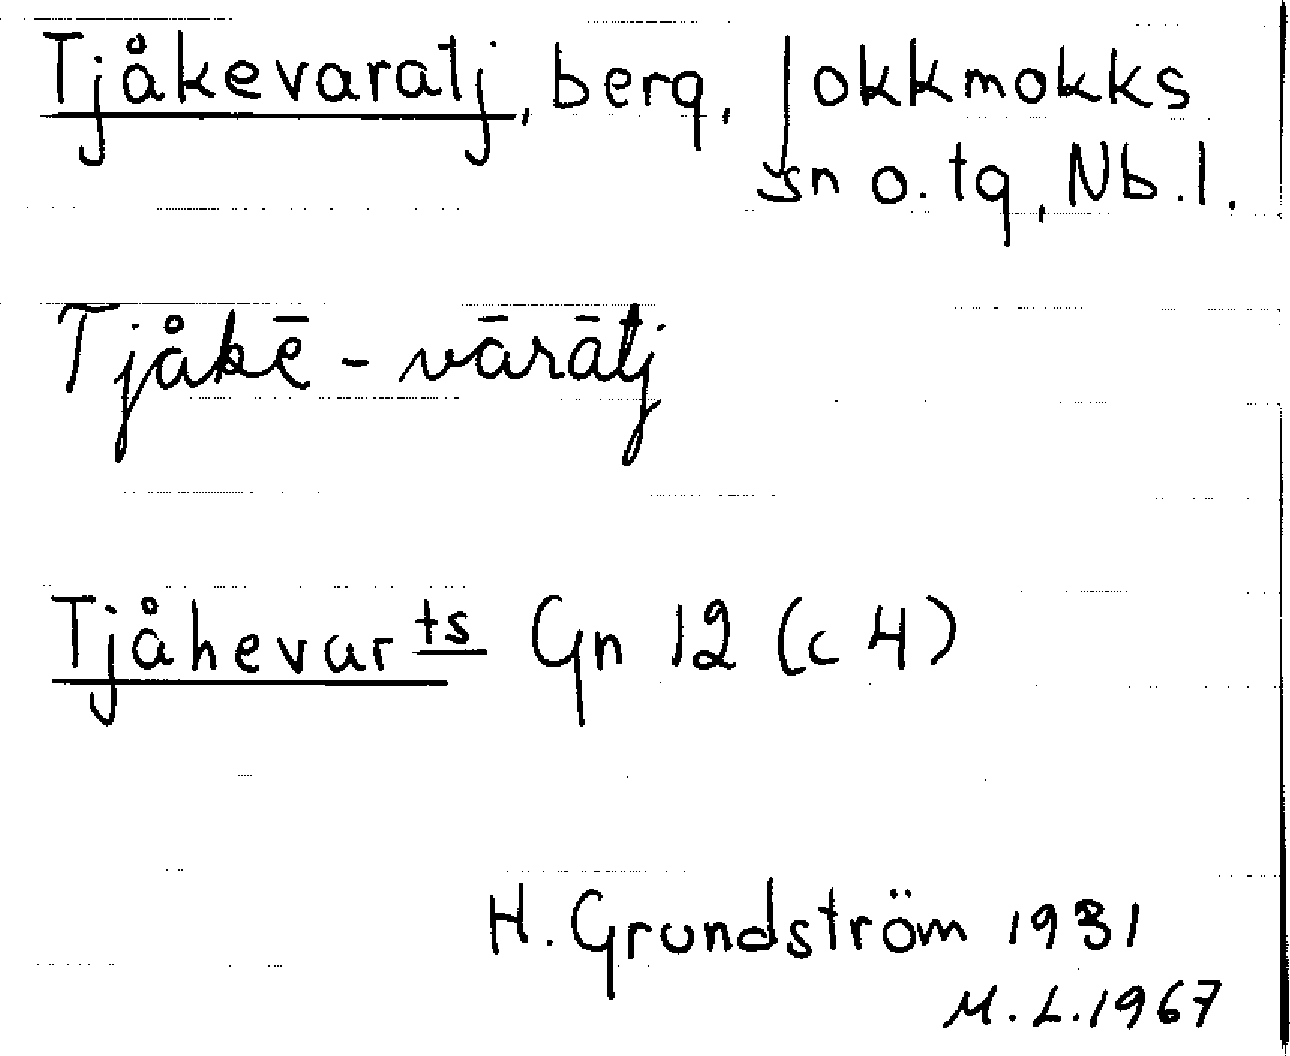 Tjåkevaratj, berg, Jokkmokks
sn o. tg, Nb. l.
Tjåkē - vārātj
Tjåhevar ts Gn 12 (c 4)
H. Grundström 1931
M. L. 1967